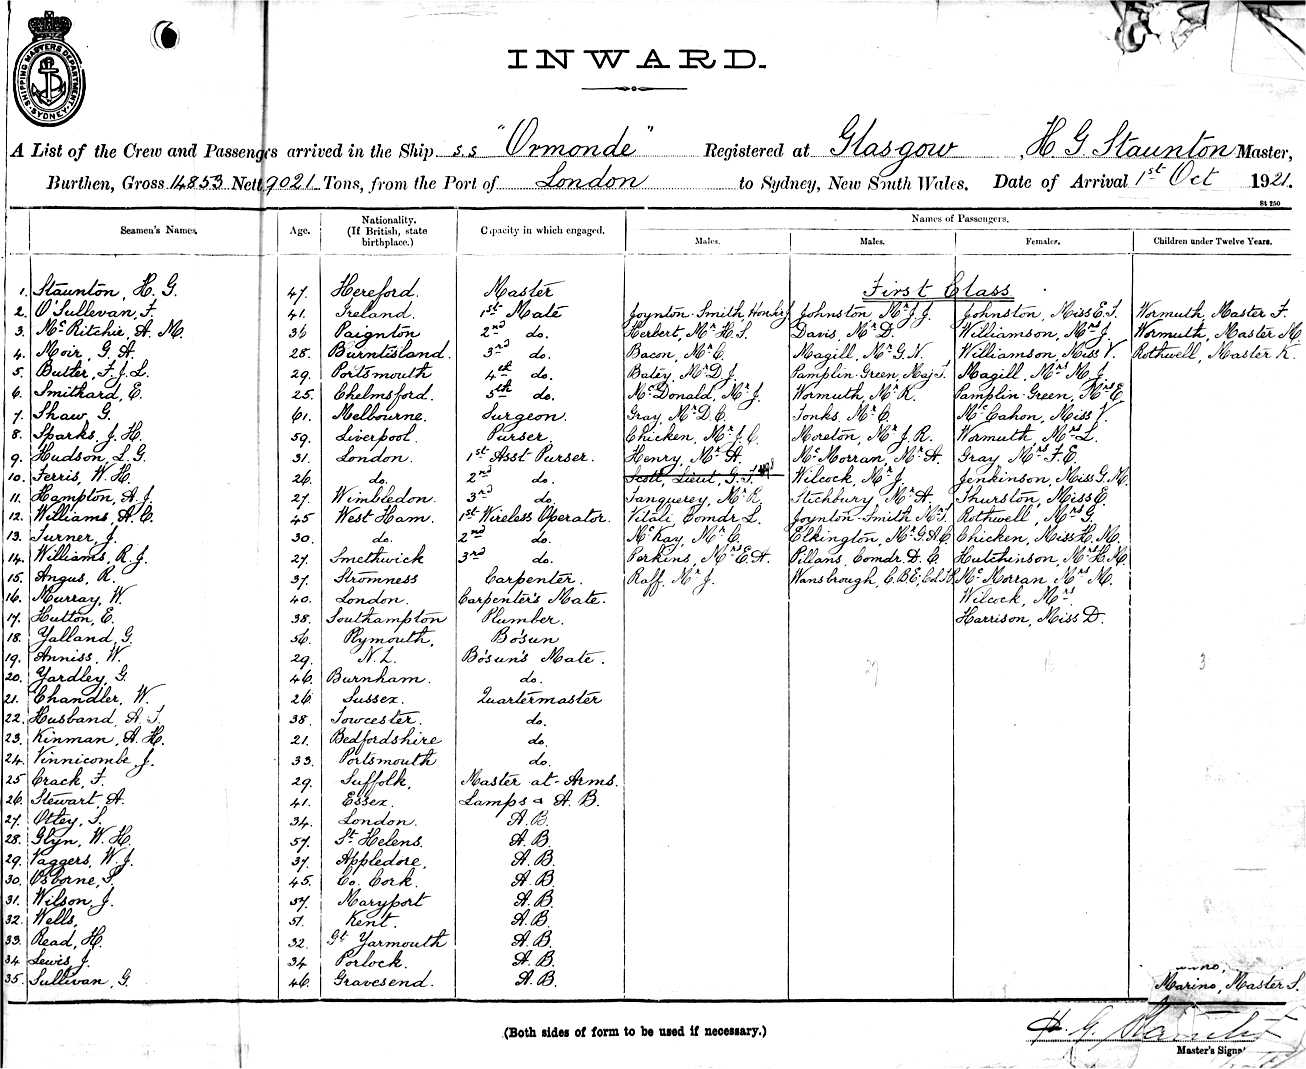 SHIPPING MASTERS DEPARTMENT SYDNEY
INWARD.
A List of the Crew and Passengers arrived in the Ship s.s "Ormonde" Registered at Glasgow, H. G. Staunton Master,
Burthen, Gross 14853 Nett 9021 Tons, from the Port of London to Sydney, New South Wales. Date of Arrival 1st Oct 1921.
St 250
Seamen's Names. Age. Nationality. (If British, state birthplace.) Capacity in which engaged. Names of Passengers.
Males. Males. Females. Children under Twelve Years.
First Class
1. Staunton, H. G. 47. Hereford. Master
2. O'Sullevan, F. 41. Ireland. 1st Mate Joynton-Smith, Henry J Johnston Mr J. J. Johnston, Miss E. T. Wormuth, Master F.
3. McRitchie, A. M. 36 Paignton 2nd do. Herbert, Mr H. S. Davis, Mr D. Williamson, Mrs J. Wormuth, Master M.
4. Moir, G. A. 28. Burntisland. 3rd do. Bacon, Mr C. Magill, Mr G. N. Williamson, Miss V. Rothwell, Master K.
5. Butler, F. J. L. 29. Portsmouth 4th do. Batey, Mr D. J. Pamplin-Green, Maj. T. Magill, Mrs M. J.
6. Smithard, E. 25. Chelmsford. 5th do. McDonald, Mr J. Wormuth, Mr K. Pamplin-Green, Mrs E.
7. Shaw, G. 61. Melbourne. Surgeon. Gray, Mr D. C. Tonks Mr C. McCahon, Miss V.
8. Sparks, J. H. 59. Liverpool. Purser. Chicken, Mr J. C. Moreton, Mr J. R. Wormuth, Mrs L.
9. Hudson, L. G. 31. London. 1st Asst Purser. Henry, Mr A. McMorran, Mr A. Gray Mrs F. E.
10. Ferris, W. H. 26. do. 2nd do. Scott, Lieut, G. T. Wilcock, Mr J. Jenkinson, Miss G. M.
11. Hampton, A. J. 27. Wimbledon. 3rd do. Tanquerey, Mr R. Stichbury, Mr A. Thurston, Miss E.
12. Williams, A. C. 45 West Ham. 1st Wireless Operator. Vitali, Comdr L. Joynton-Smith Mr T. Rothwell, Mrs G.
13. Turner, J. 30. do. 2nd do. McKay, Mr C. Elkington, Mr G. A. C. Chicken, Miss H. M.
14. Williams, R. J. 27. Smethwick 3rd do. Perkins, Mrs E. A. Pillans, Comdr. D. C. Hutchinson, Mrs H. M.
15. Angus, R. 37. Stromness Carpenter. Raff, Mr J. Wansbrough, C.B.E, McMorran Mrs M.
16. Murray, W. 40. London. Carpenter's Mate. Wilcock, Mrs.
17. Hutton, E. 38. Southampton Plumber. Harrison, Miss D.
18. Yalland, G. 56. Plymouth, Bo'sun
19. Anniss, W. 29. N. Z. Bo'sun's Mate. 29 3
20. Yardley, G. 46. Burnham. do.
21. Chandler, W. 26. Sussex. Quartermaster
22. Husband, A. T. 38. Towcester. do.
23. Kinman, A. H. 21. Bedfordshire do.
24. Vinnicombe, J. 33. Portsmouth do.
25 Crack, F. 29. Suffolk, Master-at-Arms.
26. Stewart, A. 41. Essex. Lamps & A. B.
27. Ottey, S. 34. London. A. B.
28. Glyn, W. H. 57. St Helens. A. B.
29. Vaggers, W. J. 37. Appledore, A. B.
30. Osborne, S. 45. Co. Cork. A. B.
31. Wilson, J. 57. Maryport A. B.
32. Wells, 51. Kent. A. B.
33. Read, H. 32. Gt Yarmouth A. B.
34 Lewis, J. 34 Porlock. A. B.
35. Sullivan, G. 46. Gravesend. A. B. Marino, Master S.
(Both sides of form to be used if necessary.)
H. G. Staunton
Master's Signa